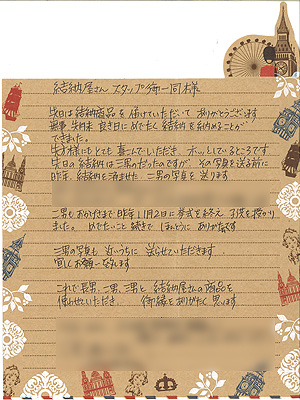 結納屋さん スタッフ御一同様
先日は結納商品を届けていただいて ありがとうございます
無事、先週末 良き日にめでたく結納を納めることが
できました。
先方様にも とても喜んでいただき、ホッとしているところです
先日の結納は三男のだったのですが、その写真を送る前に
昨年、結納を済ませた、二男の写真を送ります
二男もおかげさまで昨年11月2日に挙式を終え 子供を授かり
ました。 めでたいこと続きで ほんとうに ありがたいです
三男の写真も 近いうちに 送らせていただきます
宜しくお願い致します
これで長男、二男、三男と 結納屋さんの商品を
使わせていただき、 御縁をありがたく思います